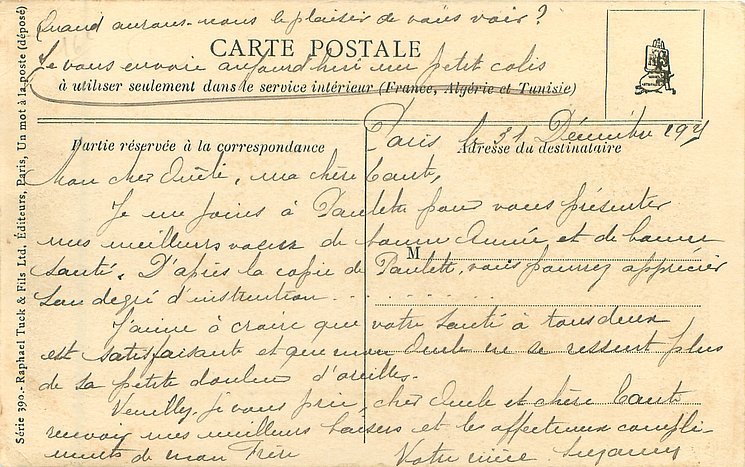 Quand aurons-nous le plaisir de vous voir ?
CARTE POSTALE
Je vous envoie aujourd'hui un petit colis
à utiliser seulement dans le service intérieur (France, Algérie et Tunisie)
Paris le 31 Décembre
Partie réservée à la correspondance
Adresse du destinataire
Mon cher Oncle, ma chère Tante,
Je me joins à Paulette pour vous présenter
mes meilleurs voeux de bonne Année et de bonne
M
santé. D'après la copie de Paulette, vous pourrez apprécier
son degré d'instruction . . . . . . . . .
J'aime à croire que votre santé à tous deux
est satisfaisante et que mon Oncle ne se ressent plus
de sa petite douleur d'oreilles.
Veuillez je vous prie, cher Oncle et chère Tante
recevoir mes meilleurs baisers et les affectueux compli-
ments de mon Frère
Votre nièce Suzanne
Série 390.- Raphael Tuck & Fils Ltd, Éditeurs, Paris, Un mot à la poste (déposé)